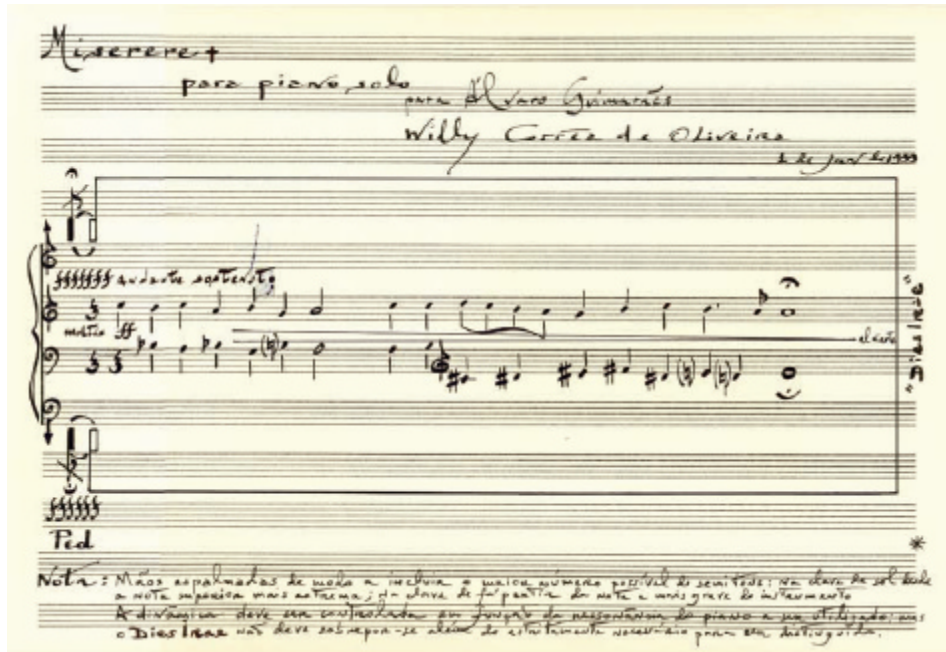 Miserere
para piano solo
para Álvaro Guimarães
Willy Corrêa de Oliveira
de Jan de 1999
ffffff andante sostenuto
ff
"Dies Irae"
ffffff
Ped
*
Nota: Mãos espalmadas de modo a incluir o maior número possível de semitons; na clave de sol desde
a nota superior mais extrema; na clave de fa partir da nota mais grave do instrumento
A dinâmica deve ser controlada em função da ressonância do piano a ser utilizado; mas
o Dies Irae não deve sobrepor-se além do estritamente necessário para ser distinguido.